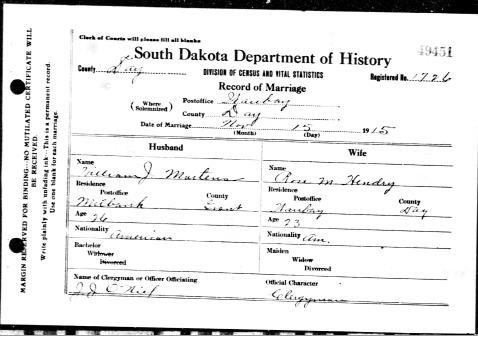 Clerk of Courts will please fill all blanks
49451
South Dakota Department of History
County Day
DIVISION OF CENSUS AND VITAL STATISTICS
Registered No. 1726
Record of Marriage
(Where Solemnized)
Postoffice Waubay
County Day
Date of Marriage Nov 15 1915
(Month) (Day)
Husband
Wife
Name
William J Martens
Name
Rose M Hendry
Residence
Postoffice County
Milbank Grant
Residence
Postoffice County
Waubay Day
Age 26
Age 23
Nationality American
Nationality Am.
Bachelor
Widower
Divorced
Maiden
Widow
Divorced
Name of Clergyman or Officer Officiating
J. J. O'Neil
Official Character
Clergyman
MARGIN RESERVED FOR BINDING—NO MUTILATED CERTIFICATE WILL
BE RECEIVED.
Write plainly with unfading ink—This is a permanent record.
Use one blank for each marriage.